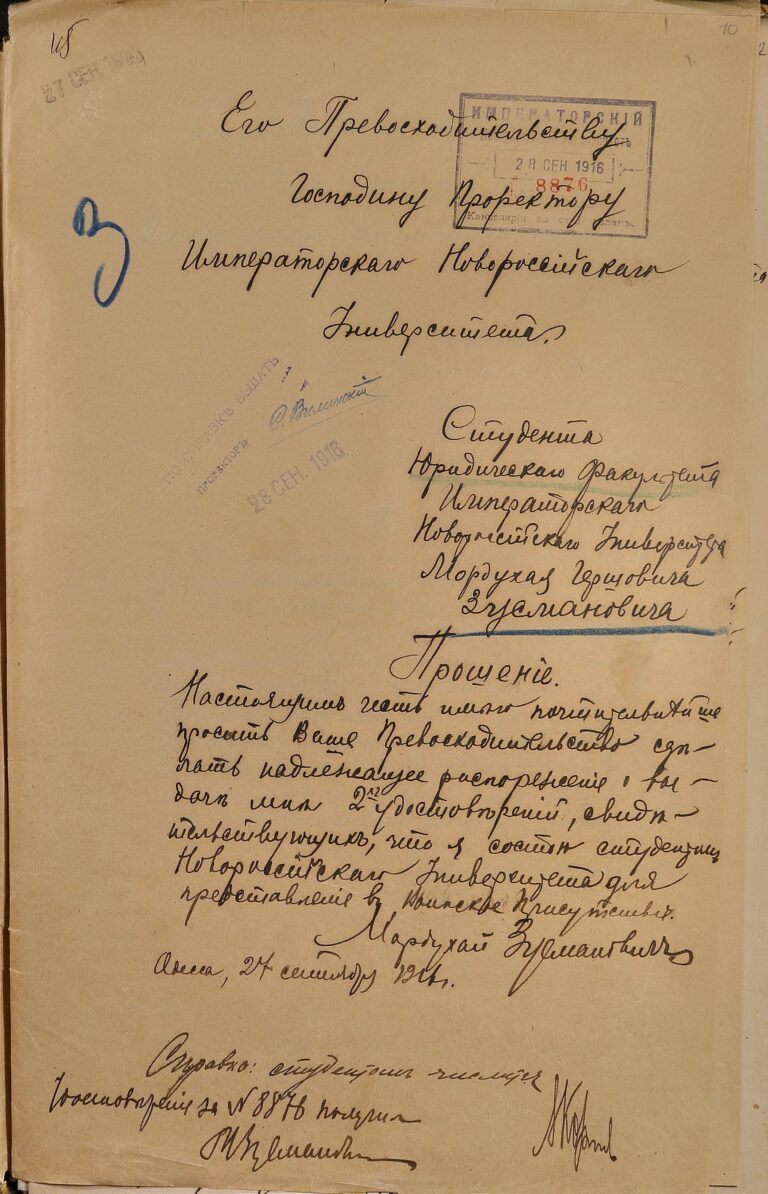 10
27 СЕН 1916
Его Превосходительству
ИМПЕРАТОРСКІЙ
28 СЕН 1916
8876
Господину Проректору
Канцелярія по студ.
З
Императорскаго Новороссійскаго
Университета.
ПО СПРАВКѢ ВЫДАТЬ
ПРОРЕКТОРЪ
28 СЕН. 1916
Студента
Юридическаго Факультета
Императорскаго
Новороссійскаго Университета
Мордухая Гершовича
Зусмановича
Прошеніе.
Настоящимъ честь имѣю почтительнѣйше
просить Ваше Превосходительство сдѣ-
лать надлежащее распоряженіе о вы-
дачѣ мнѣ 2хъ удостовѣреній, свидѣ-
тельствующихъ, что я состою студентомъ
Новороссійскаго Университета для
представленія въ Воинское Присутствіе.
Мордухай Зусмановичъ
24 сентября 1916г.
Справка: студентомъ числится
Удостовѣреніе за N 8876 получилъ
МЗусмановичъ